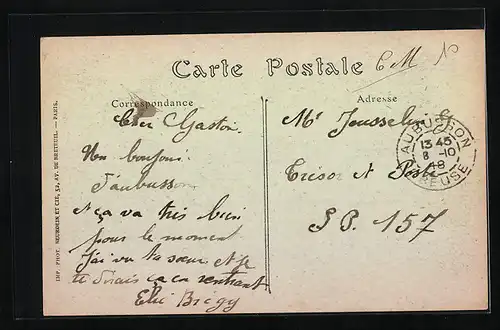 Carte Postale
C M
Correspondance
Adresse
Cher Gaston.
Un bonjour
d'aubusson
ça va très bien
pour le moment
J'ai vu ta sœur et je
te dirais ça en rentrant
Mr Jousselin
Trésor et Poste
S P. 157
AUBUSSON
13 45
8 - 10
18
CREUSE
IMP. PHOT. NEURDEIN ET CIE, 52, AV. DE BRETEUIL. — PARIS.